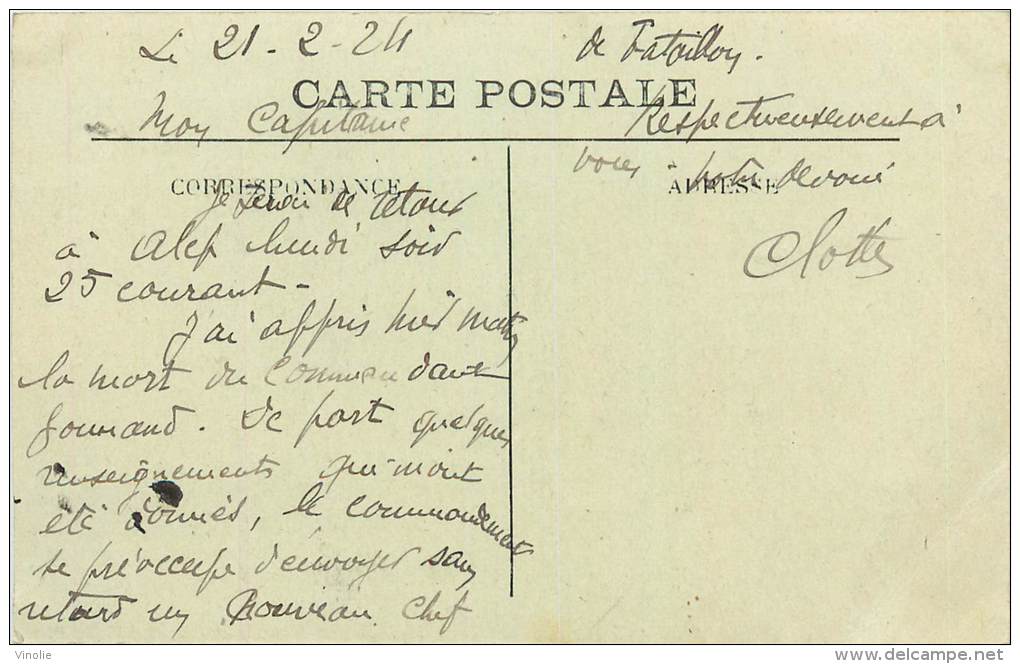 Le 21-2-24
CARTE POSTALE
Mon Capitaine
CORRESPONDANCE
Je serai de retour
à Alep lundi soir
25 courant -
J'ai appris hier matin
la mort du Commandant
Gournand. De part quelques
renseignements qui m'ont
été donnés, le commandement
se préoccupe d'envoyer sans
retard un nouveau chef
de Bataillon.
Respectueusement à
vous - votre dévoué
ADRESSE
Clottes
Vinolie
delcampe.net